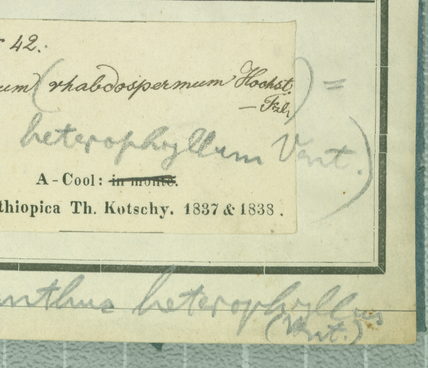 42.
um (rhabdospermum Hochst.) =
— Fzl.
heterophyllum Vent.)
A - Cool: in monte.
thiopica Th. Kotschy. 1837 & 1838.
anthus heterophyllus
(Vent.)